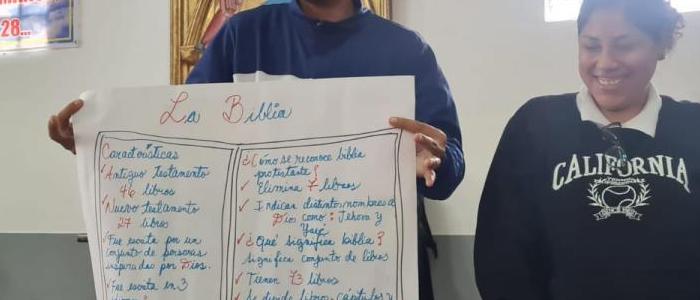 28...
La Biblia
Características
✓ Antiguo testamento
46 libros
✓ Nuevo testamento
27 libros
✓ Fue escrita por un
conjunto de personas
inspiradas por Dios.
✓ Fue escrita en 3
¿Cómo se reconoce biblia
protestante?
✓ Elimina 7 libros
✓ Indican distintos nombres a
Dios como: Jehova y
Yavé
✓ ¿Qué significa biblia?
Significa conjunto de libros
✓ Tienen 73 libros
✓ Se divide libros, capítulos y
CALIFORNIA